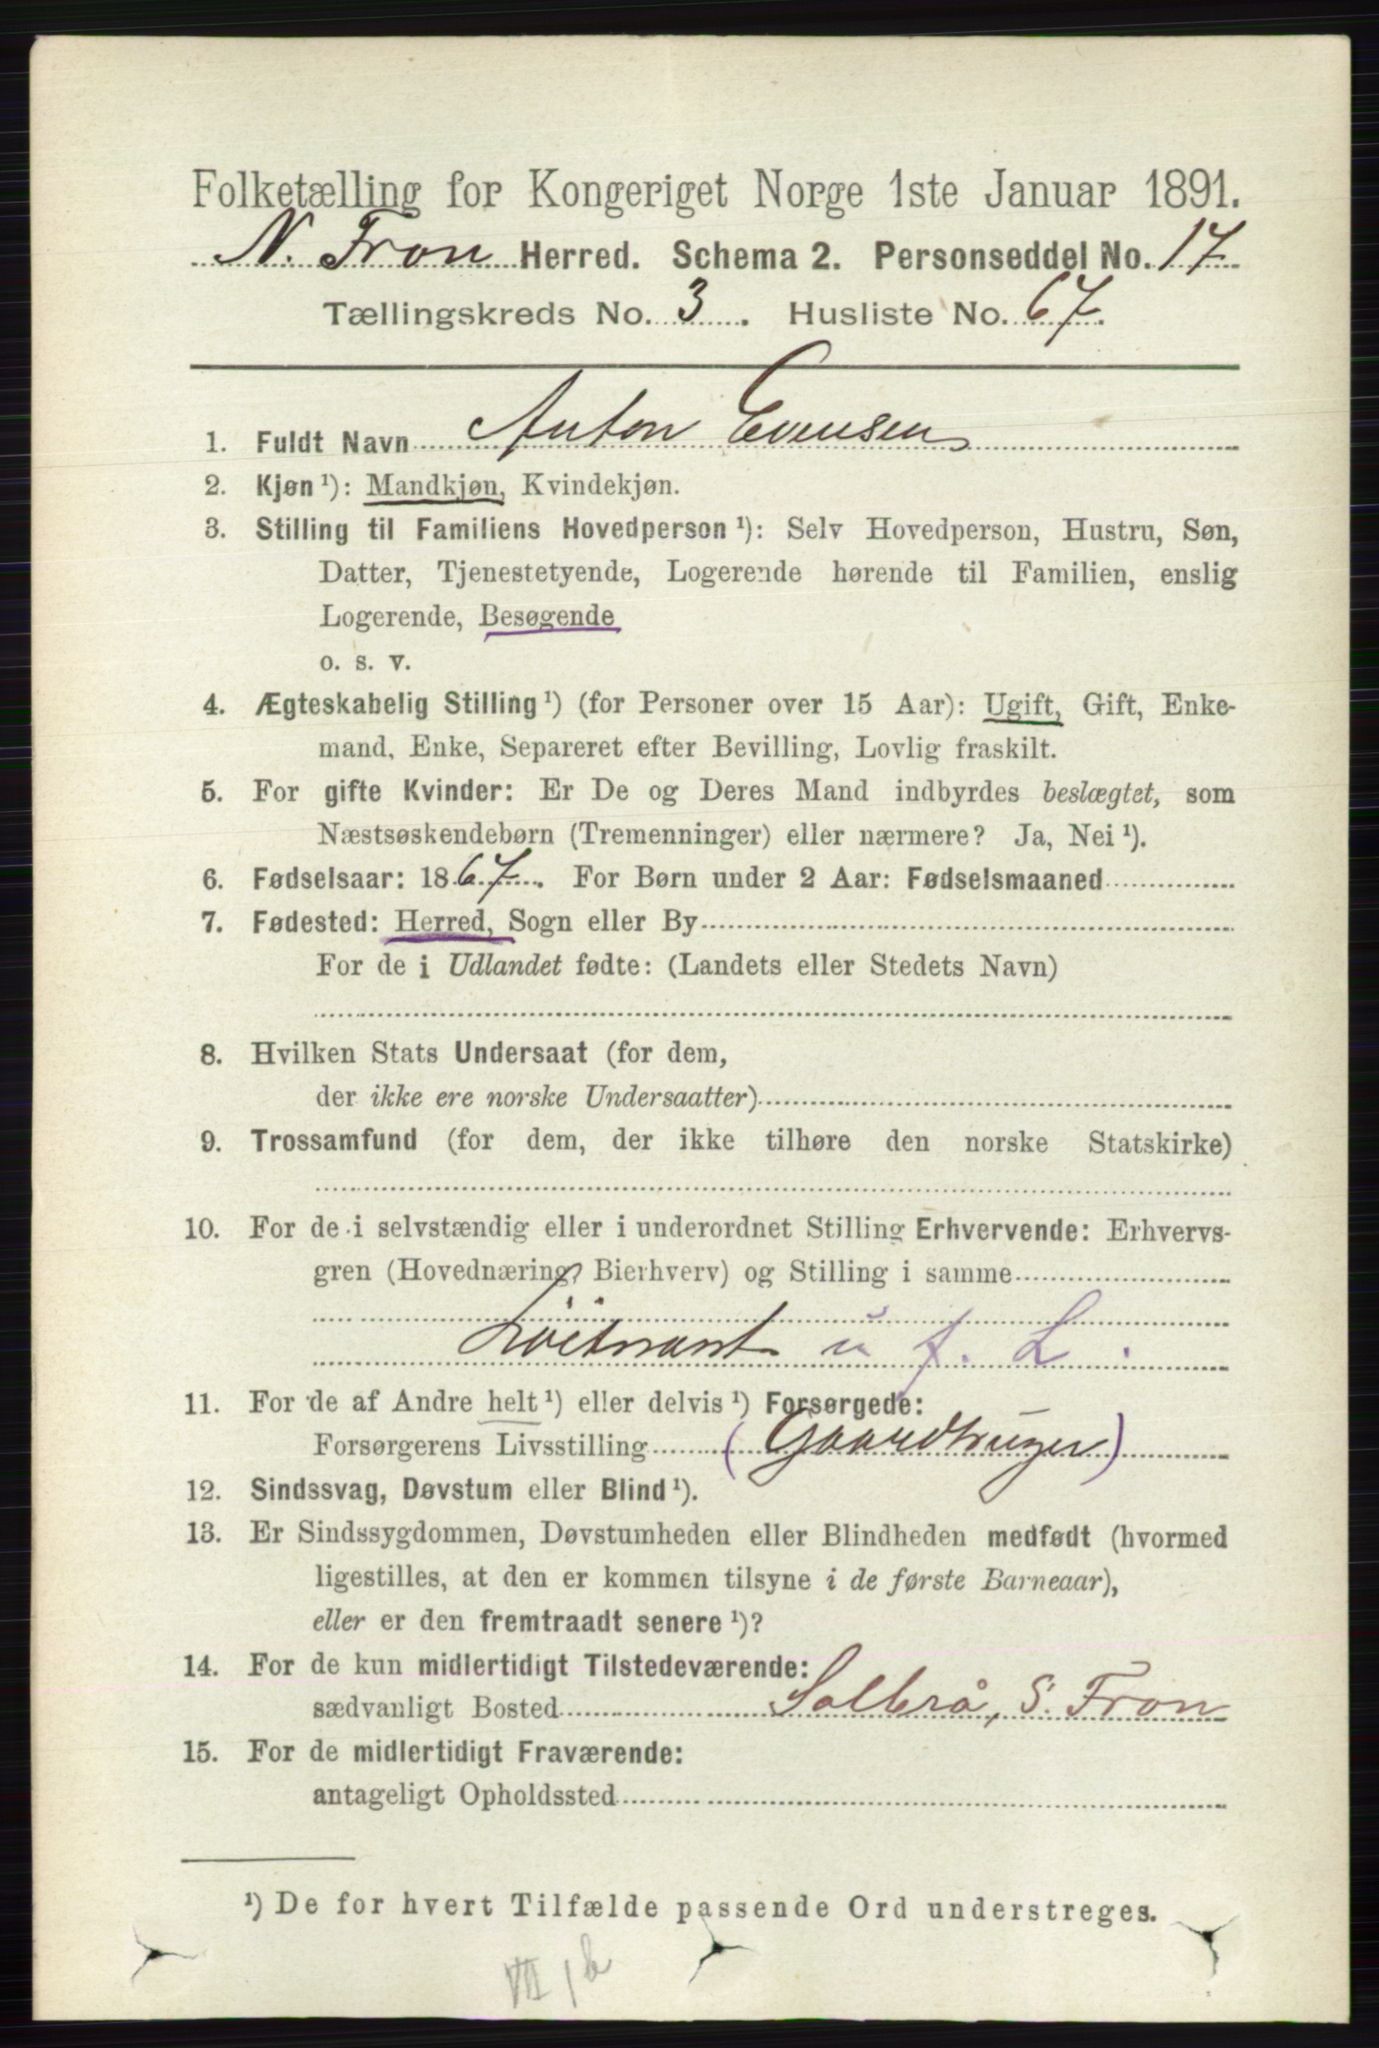 Folketælling for Kongeriget Norge 1ste Januar 1891.
N. Fron Herred. Schema 2. Personseddel No. 17
Tællingskreds No. 3. Husliste No. 67.
1. Fuldt Navn Anton Evensen
2. Kjøn ¹): Mandkjøn, Kvindekjøn.
3. Stilling til Familiens Hovedperson ¹): Selv Hovedperson, Hustru, Søn,
Datter, Tjenestetyende, Logerende hørende til Familien, enslig
Logerende, Besøgende
o. s. v.
4. Ægteskabelig Stilling ¹) (for Personer over 15 Aar): Ugift, Gift, Enke-
mand, Enke, Separeret efter Bevilling, Lovlig fraskilt.
5. For gifte Kvinder: Er De og Deres Mand indbyrdes beslægtet, som
Næstsøskendebørn (Tremenninger) eller nærmere? Ja, Nei ¹).
6. Fødselsaar: 1867. For Børn under 2 Aar: Fødselsmaaned
7. Fødested: Herred, Sogn eller By
For de i Udlandet fødte: (Landets eller Stedets Navn)
8. Hvilken Stats Undersaat (for dem,
der ikke ere norske Undersaatter)
9. Trossamfund (for dem, der ikke tilhøre den norske Statskirke)
10. For de i selvstændig eller i underordnet Stilling Erhvervende: Erhvervs-
gren (Hovednæring, Bierhverv) og Stilling i samme
Løitnant u f. L.
11. For de af Andre helt ¹) eller delvis ¹) Forsørgede:
Forsørgerens Livsstilling (Gaardbruger)
12. Sindssvag, Døvstum eller Blind ¹).
13. Er Sindssygdommen, Døvstumheden eller Blindheden medfødt (hvormed
ligestilles, at den er kommen tilsyne i de første Barneaar),
eller er den fremtraadt senere ¹)?
14. For de kun midlertidigt Tilstedeværende:
sædvanligt Bosted Solbrå, S. Fron
15. For de midlertidigt Fraværende:
antageligt Opholdssted
¹) De for hvert Tilfælde passende Ord understreges.